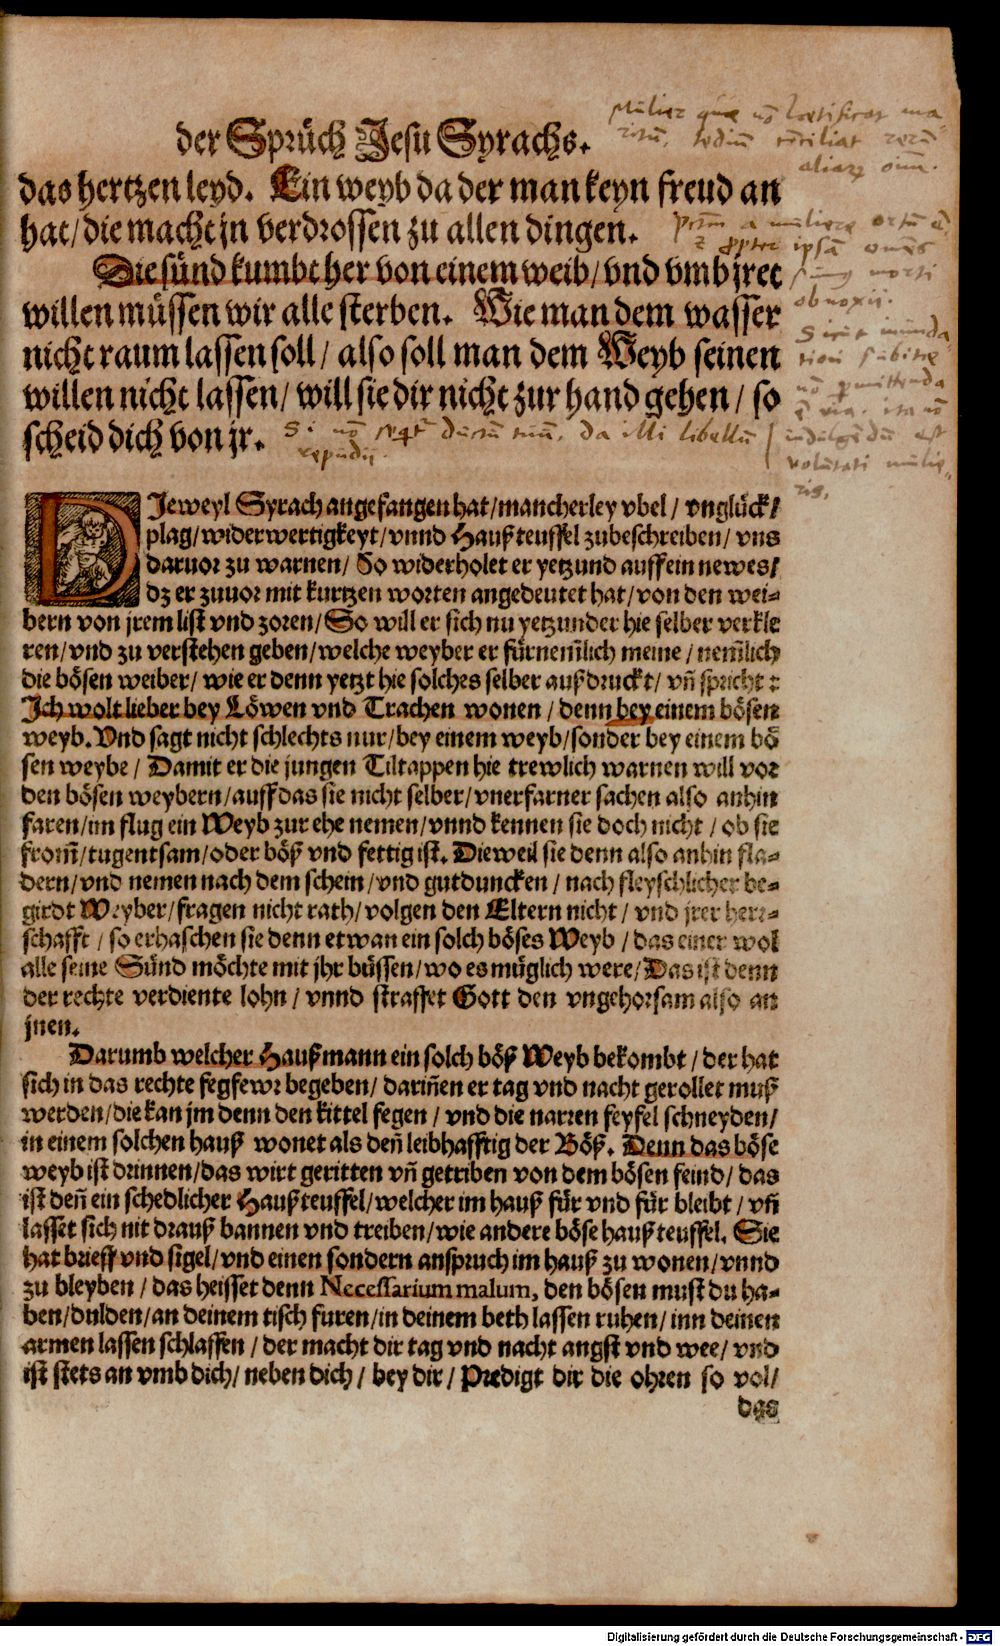 der Sprüch Jesu Syrachs.
das hertzen leyd. Ein weyb da der man keyn freud an
hat/die macht jn verdrossen zu allen dingen.
Die sünd kumbt her von einem weib/vnd vmb jret
willen müssen wir alle sterben. Wie man dem wasser
nicht raum lassen soll/ also soll man dem Weyb seinen
willen nicht lassen/ will sie dir nicht zur hand gehen/ so
scheid dich von jr.
Mulier que nō letificat ma-
ritū, tediū
aliarū oīm.
a muliere ortū ē,
ꝛ propter ipsā omēs
sumus morti
obnoxii.
Sicut inunda-
tioni subite
nō ꝑmittenda
ē via. ita nō
indulgēdū est
volūtati mulie-
ris.
Si nō ductū tuū, da illi libellū
repudii.
DJeweyl Syrach angefangen hat/mancherley vbel/ vnglück/
plag/widerwertigkeyt/vnnd Haußteuffel zubeschreiben/ vns
daruor zu warnen/ So widerholet er yetzund auff ein newes/
dz er zuuor mit kurtzen worten angedeutet hat/von den wei-
bern von jrem list vnd zoren/So will er sich nu yetzunder hie selber verkle
ren/vnd zu verstehen geben/welche weyber er fürnem̃lich meine/ nem̃lich
die bösen weiber/ wie er denn yetzt hie solches selber außdruckt/ vñ spricht:
Ich wolt lieber bey Löwen vnd Trachen wonen/ denn bey einem bösen
weyb. Vnd sagt nicht schlechts nur/bey einem weyb/sonder bey einem bö
sen weybe/ Damit er die jungen Tiltappen hie trewlich warnen will vor
den bösen weybern/auff das sie nicht selber/vnerfarner sachen also anhin
faren/im flug ein Weyb zur ehe nemen/vnnd kennen sie doch nicht/ ob sie
from̃/tugentsam/oder böß vnd fettig ist. Dieweil sie denn also anhin fla-
dern/vnd nemen nach dem schein/vnd gutduncken/ nach fleyschlicher be-
girdt Weyber/fragen nicht rath/volgen den Eltern nicht/ vnd jrer herr-
schafft/ so erhaschen sie denn etwan ein solch böses Weyb/ das einer wol
alle seine Sünd möchte mit jhr büssen/wo es müglich were/Das ist denn
der rechte verdiente lohn/ vnnd straffet Gott den vngehorsam also an
jnen.
Darumb welcher Haußmann ein solch böß Weyb bekombt/ der hat
sich in das rechte fegfewr begeben/ dariñen er tag vnd nacht gerollet muß
werden/die kan jm denn den kittel fegen/ vnd die narren feyfel schneyden/
in einem solchen hauß wonet als deñ leibhafftig der Böß. Denn das böse
weyb ist drinnen/das wirt geritten vñ getriben von dem bösen feind/ das
ist deñ ein schedlicher Haußteuffel/welcher im hauß für vnd für bleibt/ vñ
lasset sich nit drauß bannen vnd treiben/wie andere böse haußteuffel. Sie
hat brieff vnd sigel/vnd einen sondern anspruch im hauß zu wonen/vnnd
zu bleyben/ das heisset denn Necessarium malum, den bösen must du ha-
ben/dulden/an deinem tisch furen/in deinem beth lassen ruhen/ inn deinen
armen lassen schlaffen/ der macht dir tag vnd nacht angst vnd wee/ vnd
ist stets an vmb dich/ neben dich/ bey dir/ Predigt dir die ohren so vol/
das
Digitalisierung gefördert durch die Deutsche Forschungsgemeinschaft - DFG